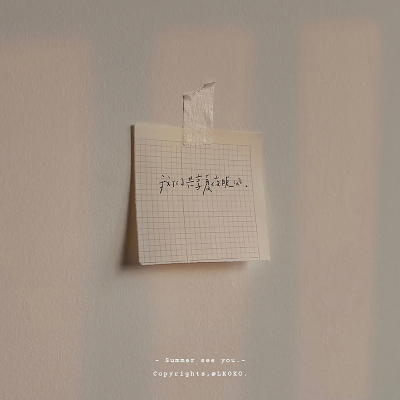 我们共享夏夜晚风.
- Summer see you.-
Copyrights,@LKOKO.